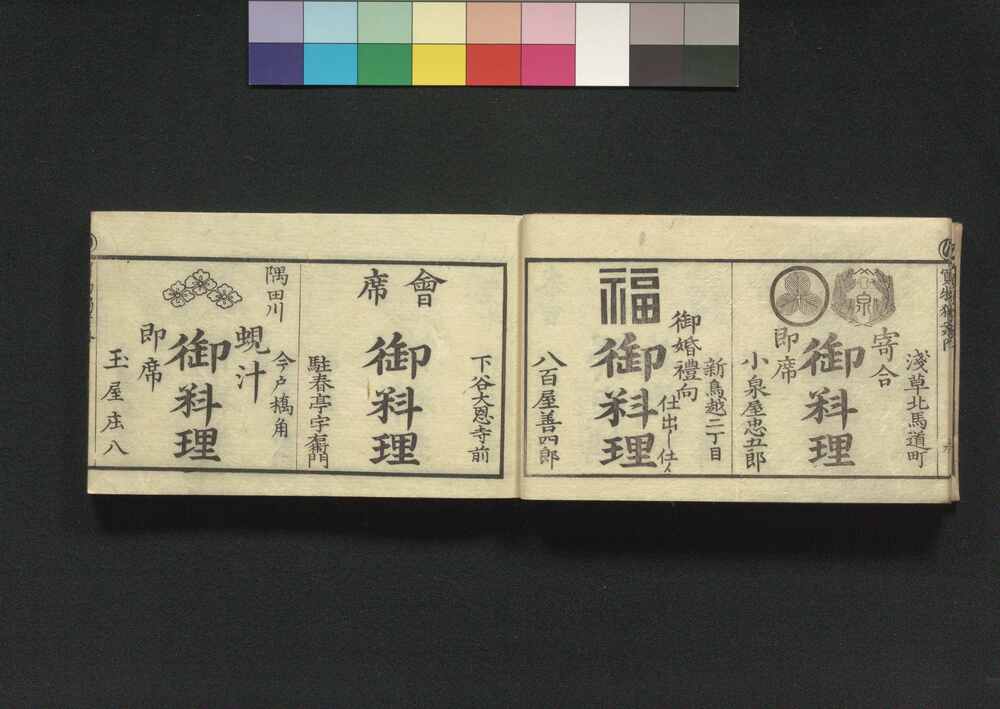 淺草北馬道町
寄合
泉
御料理
即席
小泉屋忠五郎
新鳥越二丁目
御婚禮向
仕出し仕候
福
御料理
八百屋善四郎
下谷大恩寺前
會席
御料理
駐春亭宇右衛門
隅田川
今戸橋角
蜆汁
御料理
即席
玉屋庄八